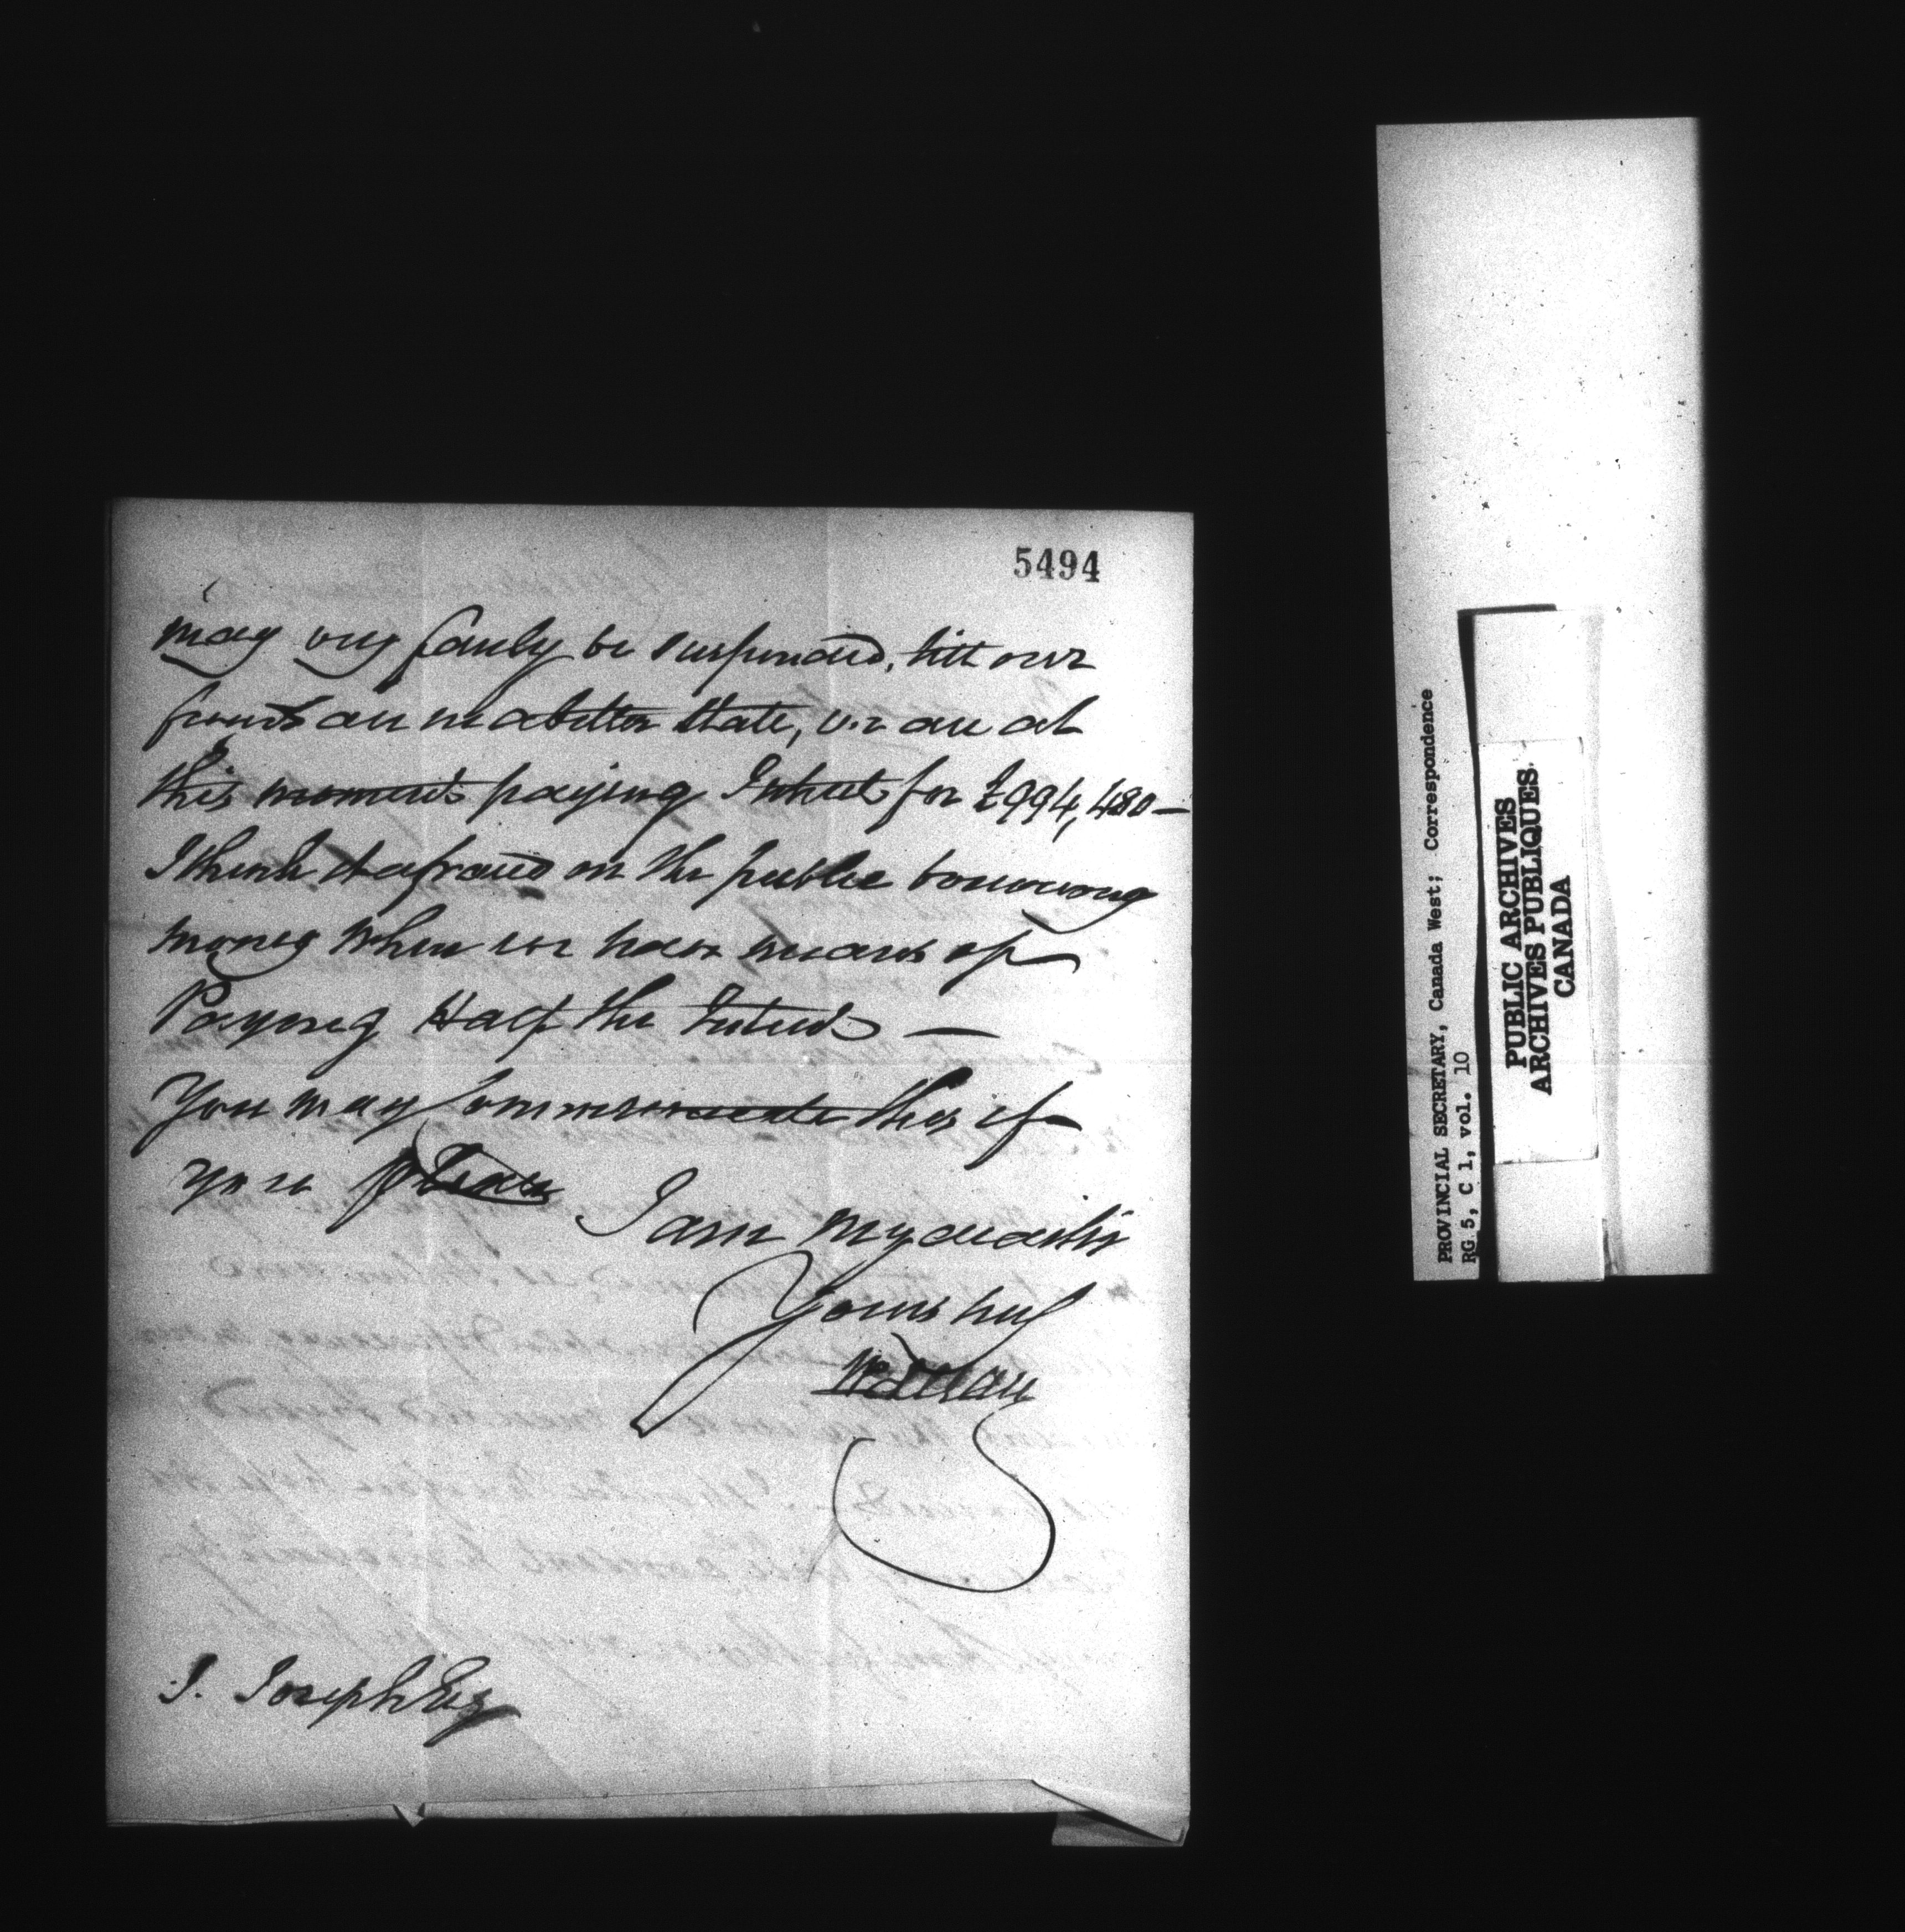 5494
may very fairly be suspended, till our
funds are in a better State, we are at
this moment paying Interest for £994,480 —
I think it a fraud on the public borrowing
money when we have means of
Paying Half the Interest —
You may Communicate this if
you please
I am my dear Sir
Yours truly
J. Joseph Esq
PROVINCIAL SECRETARY, Canada West; Correspondence
RG 5, C 1, vol. 10
PUBLIC ARCHIVES
ARCHIVES PUBLIQUES
CANADA